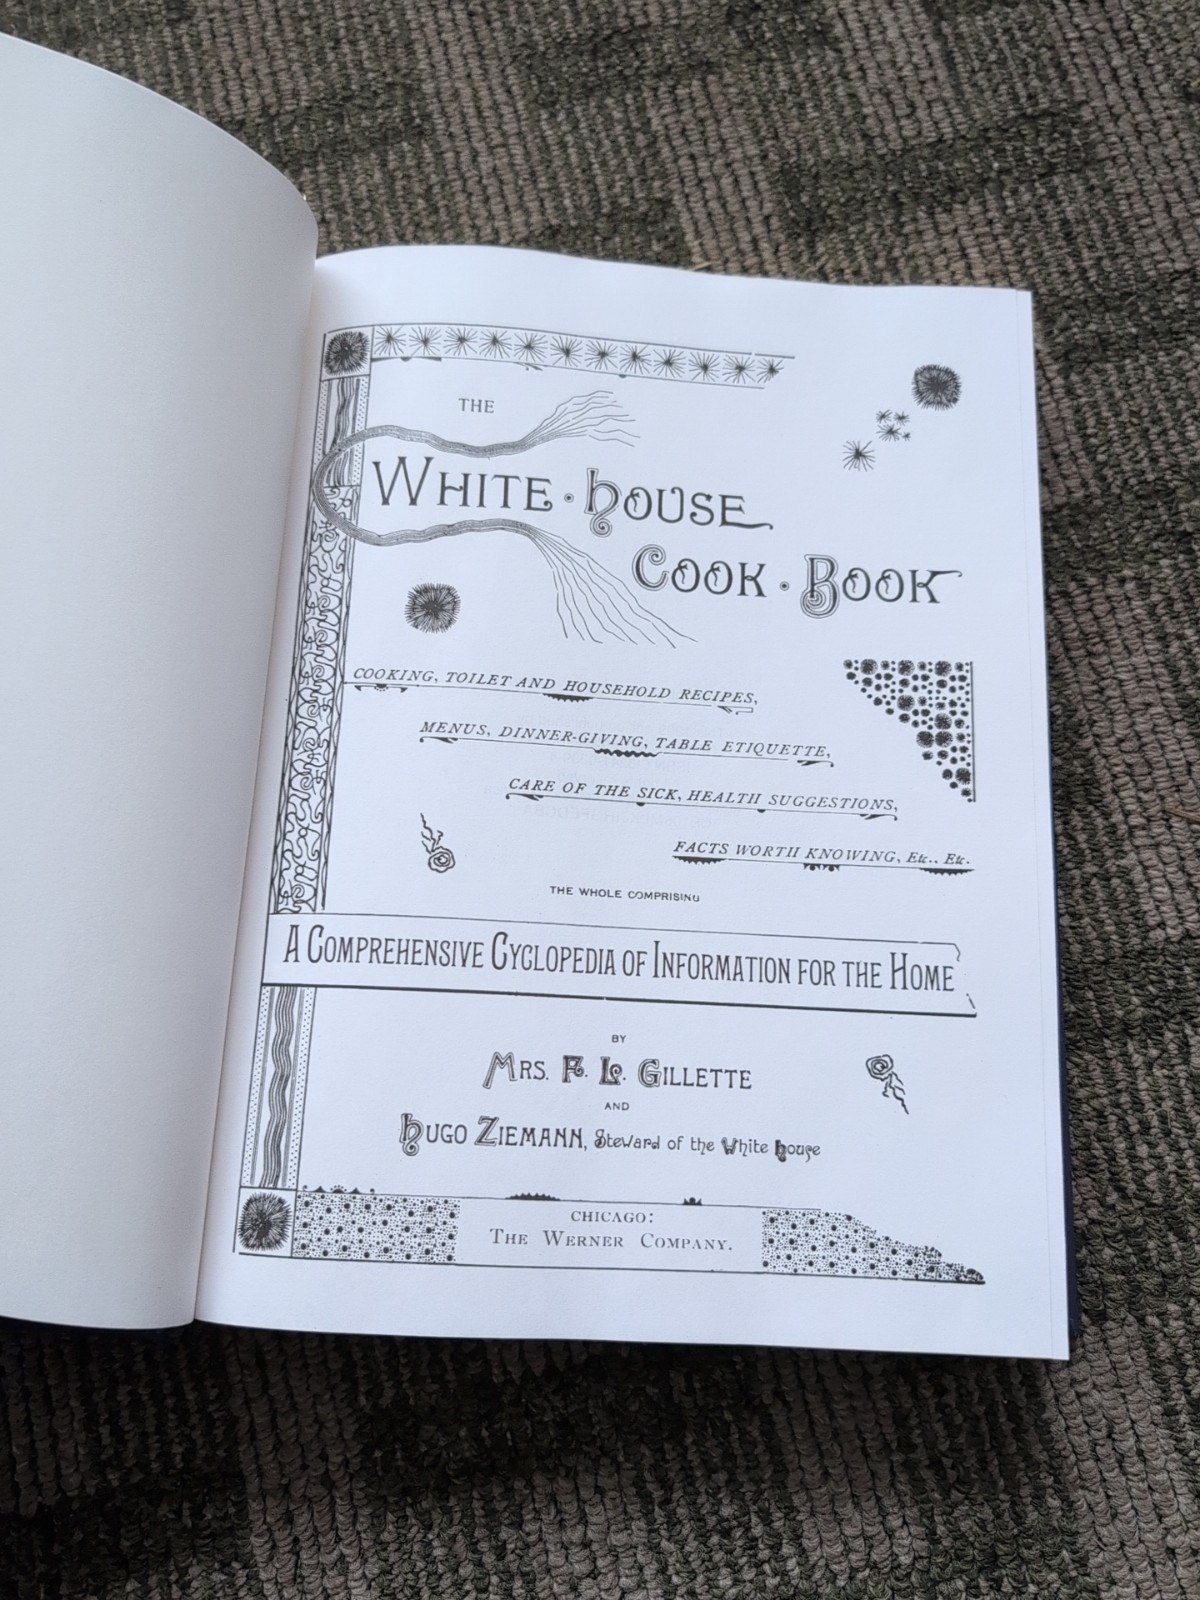 THE
WHITE · HOUSE
COOK · BOOK
COOKING, TOILET AND HOUSEHOLD RECIPES,
MENUS, DINNER-GIVING, TABLE ETIQUETTE,
CARE OF THE SICK, HEALTH SUGGESTIONS,
FACTS WORTH KNOWING, Etc., Etc.
THE WHOLE COMPRISING
A COMPREHENSIVE CYCLOPEDIA OF INFORMATION FOR THE HOME
BY
MRS. F. L. GILLETTE
AND
HUGO ZIEMANN, Steward of the White House
CHICAGO:
THE WERNER COMPANY.